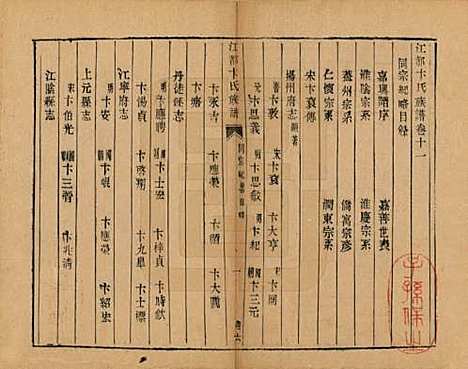 江都卞氏族譜卷十一
同宗紀略目錄
嘉興譜序 嘉善世表
淮陰宗系 淮慶宗系
蓋州宗系 僑寓宗彥
仁懷宗系 潤東宗系
宋卞袞傳
揚州府志
宋 卞袞 卞大亨 卞圜
元 卞思義 明 卞思敏 國 卞起 卞三元
江都卞氏族譜
同宗紀略目錄 一
卞永吉 卞應榮 卞頤 卞大
卞
丹徒縣志
明 卞應聘 卞士宏 卞梓貞 卞時欽
卞湯貞 卞啓朔 卞九皐 卞士標
江寧府志
明 卞安 卞琨 卞應榮 卞紹宏
上元縣志
卞伯光 卞三 卞兆清
江陰縣志
子孫保之